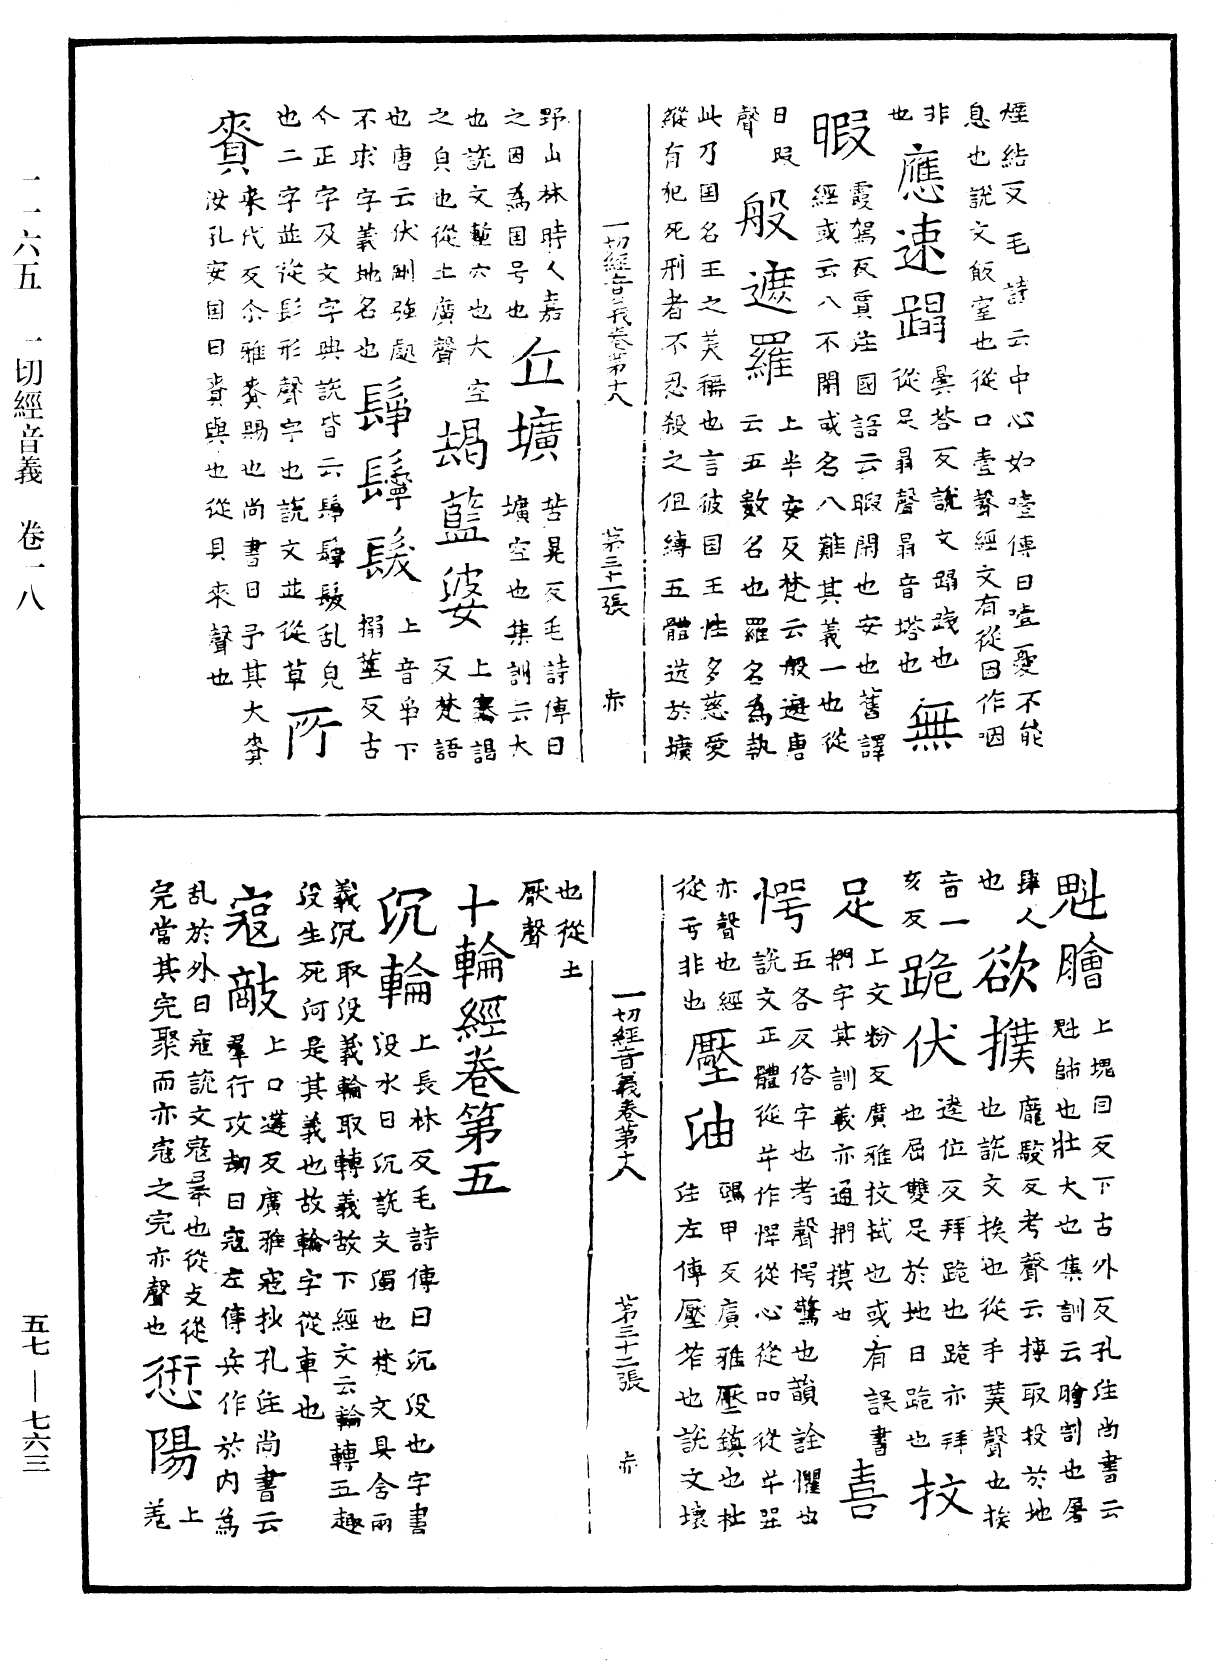 煙結反毛詩云中心如噎傳曰噎憂不能
息也說文飯窒也從口壹聲經文有從因作咽
非也
應速蹋
曇荅反說文蹋踐也
從足𦐇聲𦐇音塔也
無
暇
霞駕反賈注國語云暇閑也安也舊譯
經或云八不閑或名八難其義一也從
日叚聲
般遮羅
上半安反梵云般遮唐
云五數名也羅名為執
此乃国名王之美稱也言彼国王性多慈愛
縱有犯死刑者不忍殺之但縛五體送於壙
一切經音義卷第十八 第三十一張 赤
野山林時人嘉
之因為国号也
丘壙
苦晃反毛詩傳曰
壙空也集訓云大
也說文塹穴也大空
之皃也從土廣聲
朅藍婆
上褰謁
反梵語
也唐云伏剛強處
不求字義地名也
髯鬡髮
上音爭下
搦莖反古
今正字及文字典說皆云髯鬡髮乱皃
也二字並從髟形聲字也說文並從草
所
賚
來代反尒雅賚賜也尚書曰予其大賚
汝孔安国曰賚與也從貝來聲也
魁膾
上塊囙反下古外反孔注尚書云
魁師也壯大也集訓云膾割也屠
肆人也
欲撲
龐駮反考聲云撲取投於地
也說文挨也從手菐聲也挨
音一亥反
跪伏
逵位反拜跪也跪亦拜
也屈雙足於地曰跪也
抆
足
上文粉反廣雅抆拭也或有誤書
捫字其訓義亦通捫摸也
喜
愕
五各反俗字也考聲愕驚也韻詮懼也
說文正體從屰作㦍從心從吅從屰咢
亦聲也經
從亏非也
壓油
鴨甲反廣雅壓鎮也杜
注左傳壓笮也說文壞
一切經音義卷第十八 第三十二張 赤
也從土
厭聲
十輪經卷第五
沉輪
上長林反毛詩傳曰沉沒也字書
沒水曰沉說文濁也梵文具含兩
義沉取沒義輪取轉義故下經文云輪轉五趣
沒生死河是其義也故輪字從車也
寇敵
上口遘反廣雅寇抄孔注尚書云
羣行攻劫曰寇左傳兵作於内為
乱於外曰寇說文寇暴也從攴從
完當其完聚而亦寇之完亦聲也
愆陽
上
羌
二一六五 一切經音義 卷一八
五七—七六三